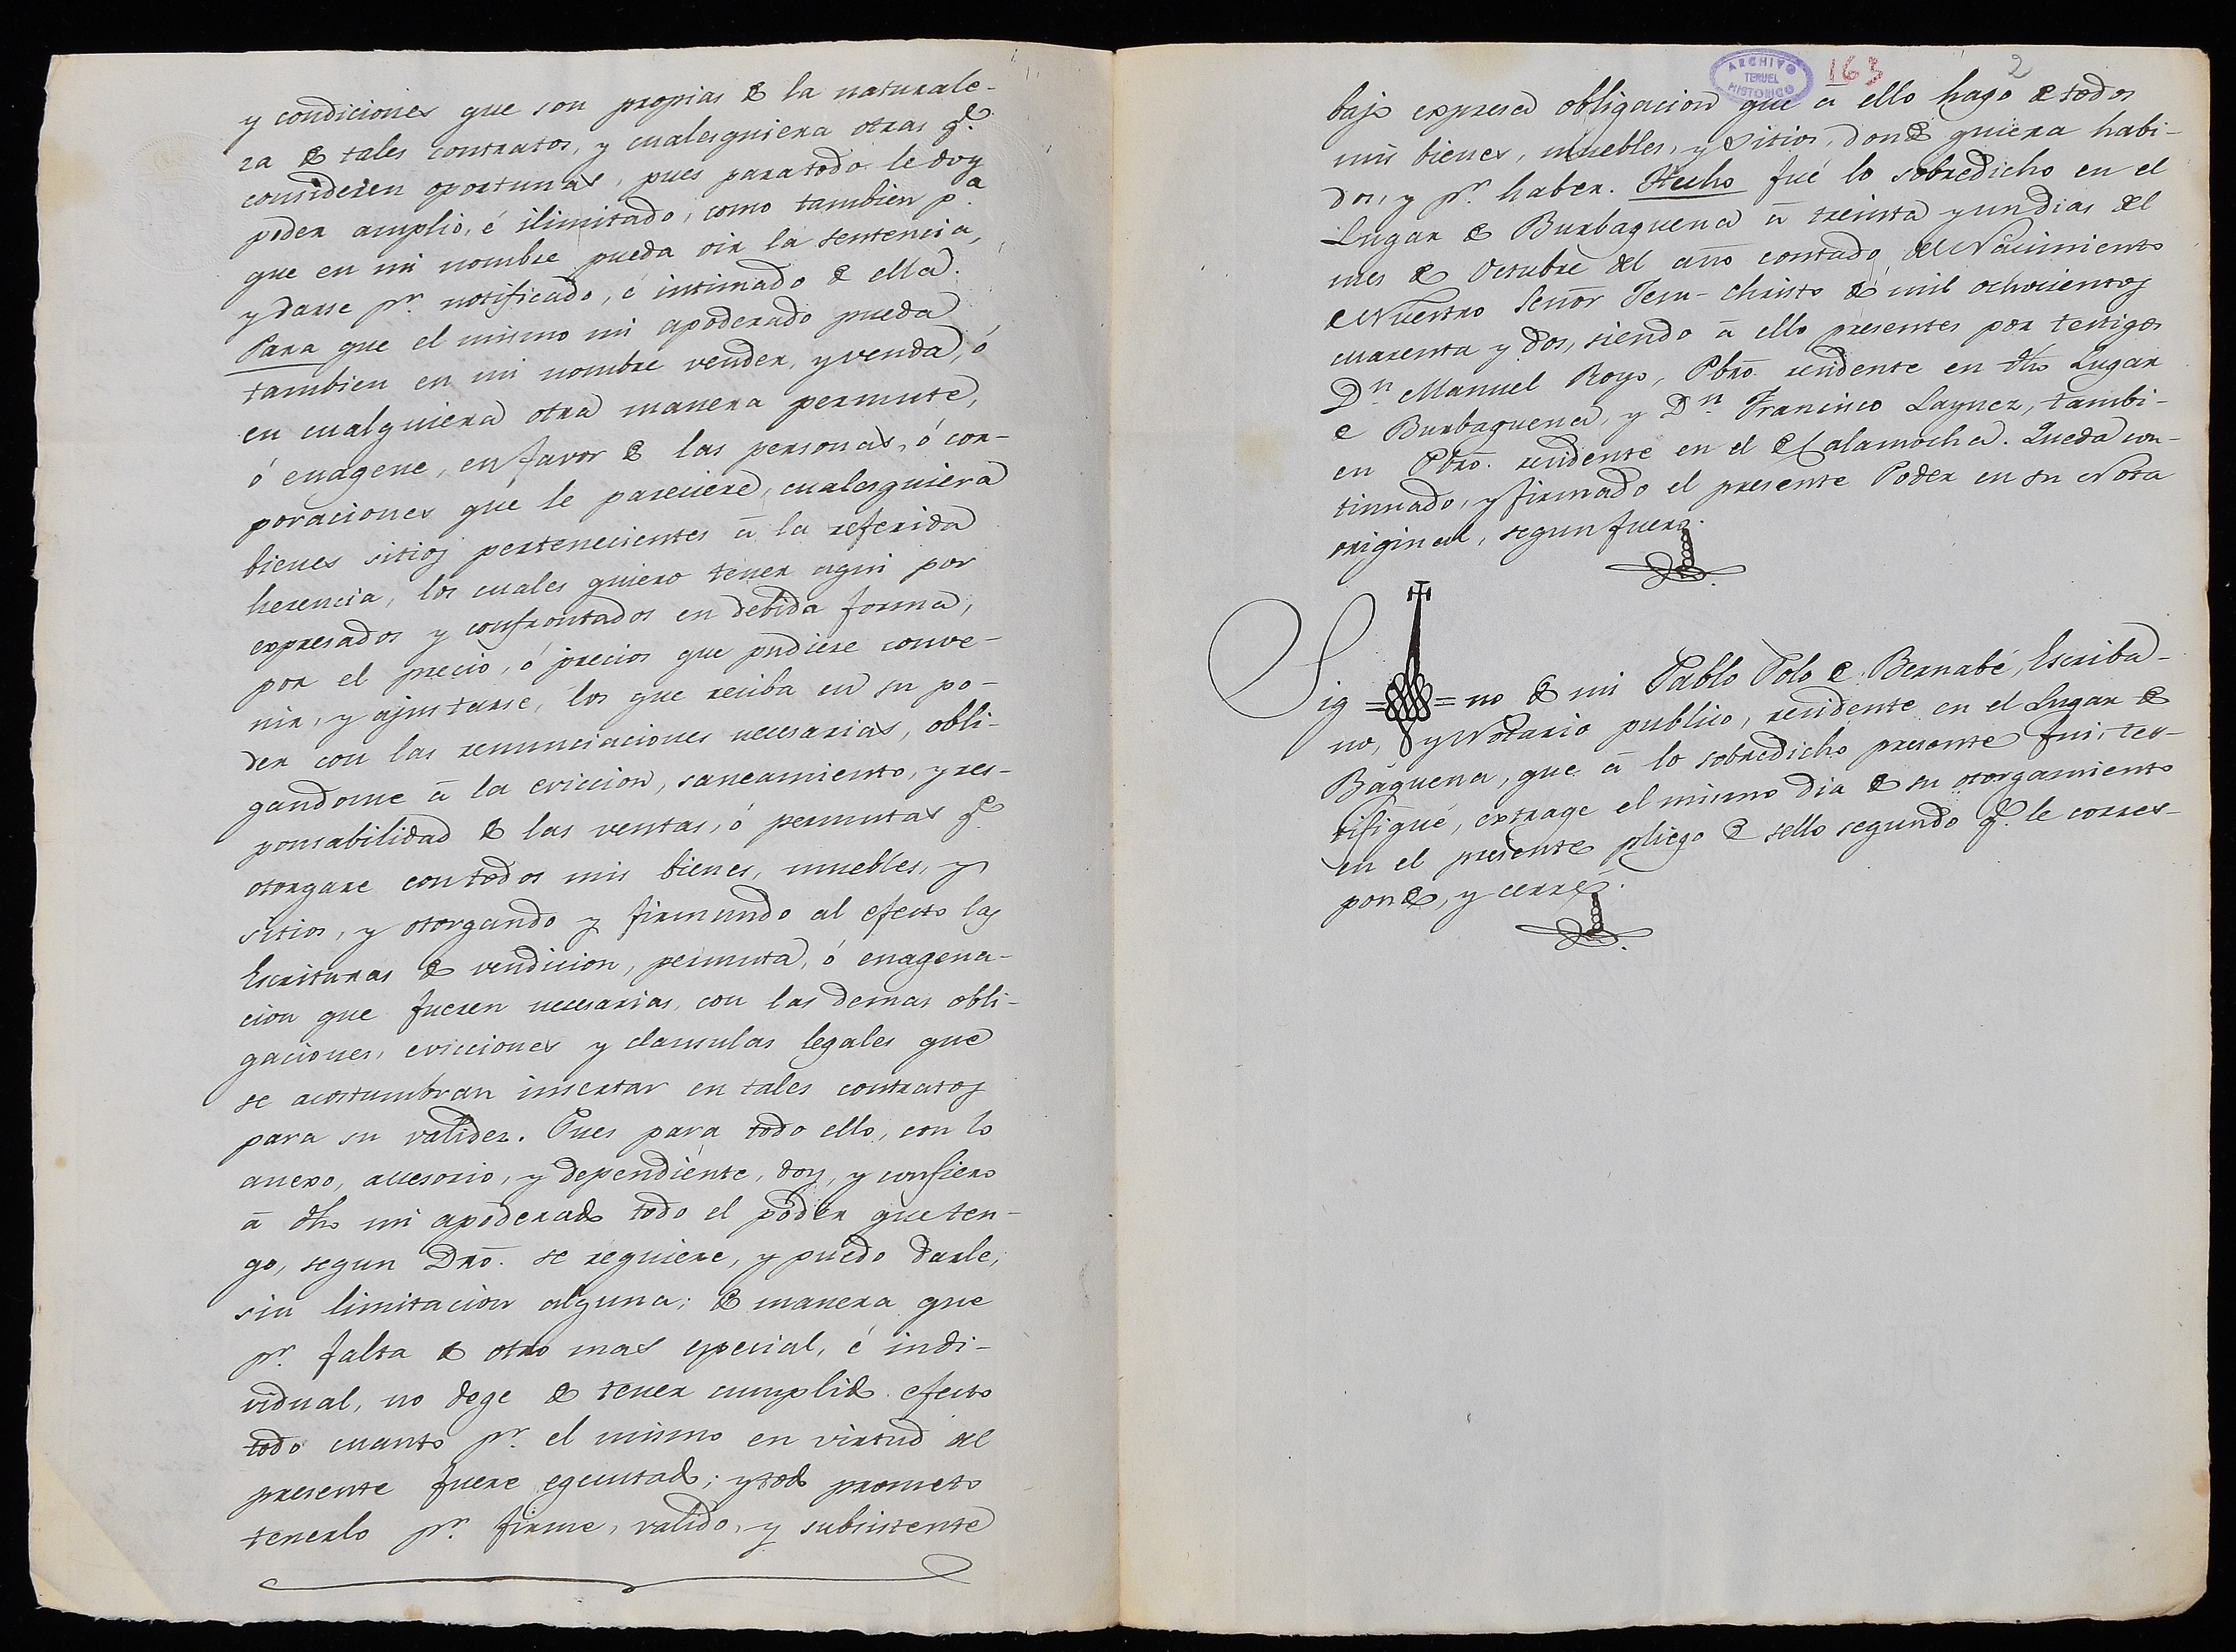 y condiciones que son propias de la naturale-
za de tales contratos, y cualesquiera otras q.e
consideren oportunas, pues para todo le doy
poder amplio, é ilimitado, como tambien p.a
que en mi nombre pueda oir la sentencia,
y darse p.r notificado, é intimado de ella.
Para que el mismo mi apoderado pueda
tambien en mi nombre vender, y venda, ó
en cualquiera otra manera permute,
ó enagene, en favor de las personas, ó cor-
poraciones que le pareciere, cualesquiera
bienes sitios pertenecientes á la referida
herencia, los cuales quiero tener aqui por
expresados y confrontados en debida forma,
por el precio, ó precios que pudiere conve-
nir, y ajustarse, los que reciba en su po-
der con las renunciaciones necesarias, obli-
gandome á la eviccion, saneamiento, y res-
ponsabilidad de las ventas, ó permutas q.e
otorgare con todos mis bienes, muebles, y
sitios, y otorgando y firmando al efecto las
Escrituras de vendicion, permuta, ó enagena-
cion que fueren necesarias, con las demas obli-
gaciones, evicciones y clausulas legales que
se acostumbran insertar en tales contratos
para su validez. Pues para todo ello, con lo
anexo, accesorio, y dependiente, doy, y confiero
á dho mi apoderado todo el poder que ten-
go, segun Dro. se requiere, y puedo darle,
sin limitacion alguna; de manera que
p.r falta de otro mas especial, é indi-
vidual, no dege de tener cumplido efecto
todo cuanto p.r el mismo en virtud del
presente fuere egecutado; y todo prometo
tenerlo p.r firme, valido, y subsistente
ARCHIVO
TERUEL
HISTORICO
163
2
bajo expresa obligacion que á ello hago de todos
mis bienes, muebles, y sitios, donde quiera habi-
dos, y p.r haber. Hecho fué lo sobredicho en el
Lugar de Burbaguena á treinta y un dias del
mes de Octubre del año contado del Nacimiento
de Nuestro Señor Jesu-Christo de mil ochocientos
cuarenta y dos, siendo á ello presentes por testigos
D.n Manuel Royo, Pbro. residente en dho Lugar
de Burbaguena, y D.n Francisco Laynez, tambi-
en Pbro. residente en el de Calamocha. Queda con-
tinuado, y firmado el presente Poder en su Nota
original, segun fuero.
Sig = = no de mi Pablo Polo de Bernabé, Escriba-
no, y Notario publico, residente en el Lugar de
Báguena, que á lo sobredicho presente fui, tes-
tifiqué, extrage el mismo dia de su otorgamiento
en el presente pliego de sello segundo q.e le corres-
ponde, y cerré.